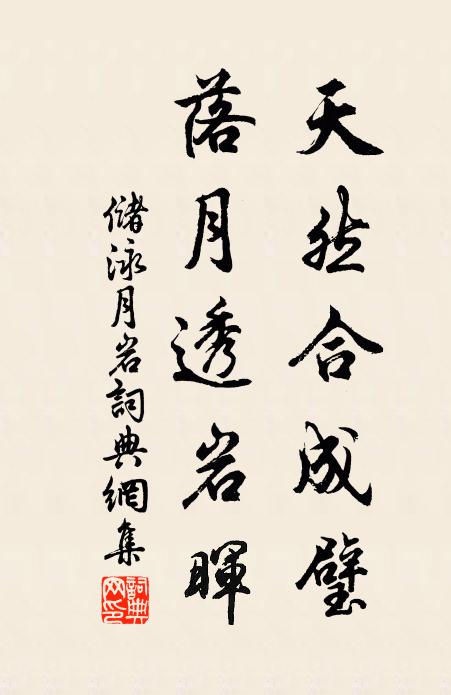 天然合成璧
落月透岩暉
儲泳月岩詞典網集
詞典网印